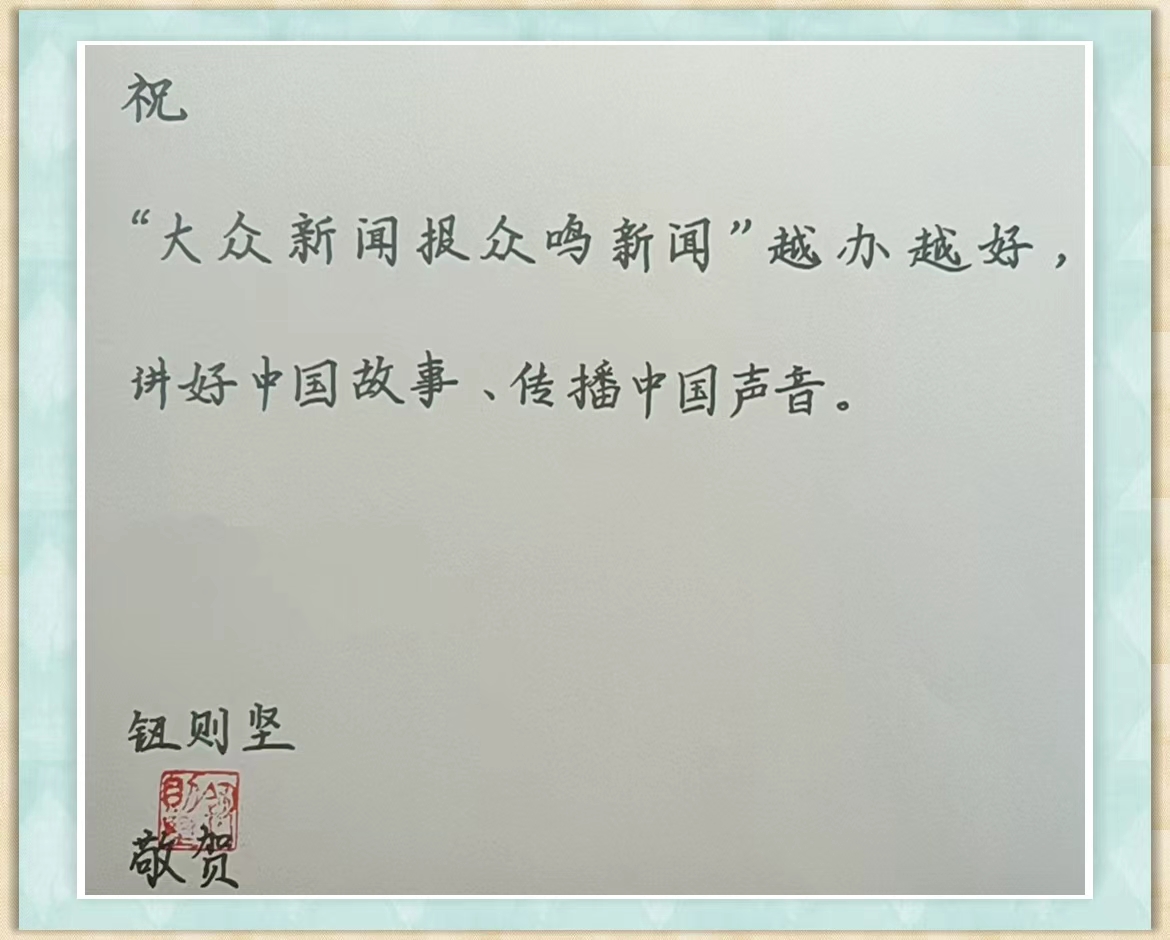 祝
“大众新闻报众鸣新闻”越办越好，
讲好中国故事、传播中国声音。
钮则坚
敬贺